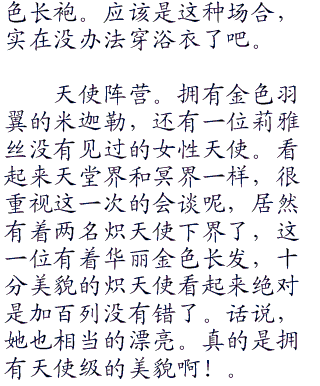 色长袍。应该是这种场合，
实在没办法穿浴衣了吧。
天使阵营。拥有金色羽
翼的米迦勒，还有一位莉雅
丝没有见过的女性天使。看
起来天堂界和冥界一样，很
重视这一次的会谈呢，居然
有着两名炽天使下界了，这
一位有着华丽金色长发，十
分美貌的炽天使看起来绝对
是加百列没有错了。话说，
她也相当的漂亮。真的是拥
有天使级的美貌啊！。